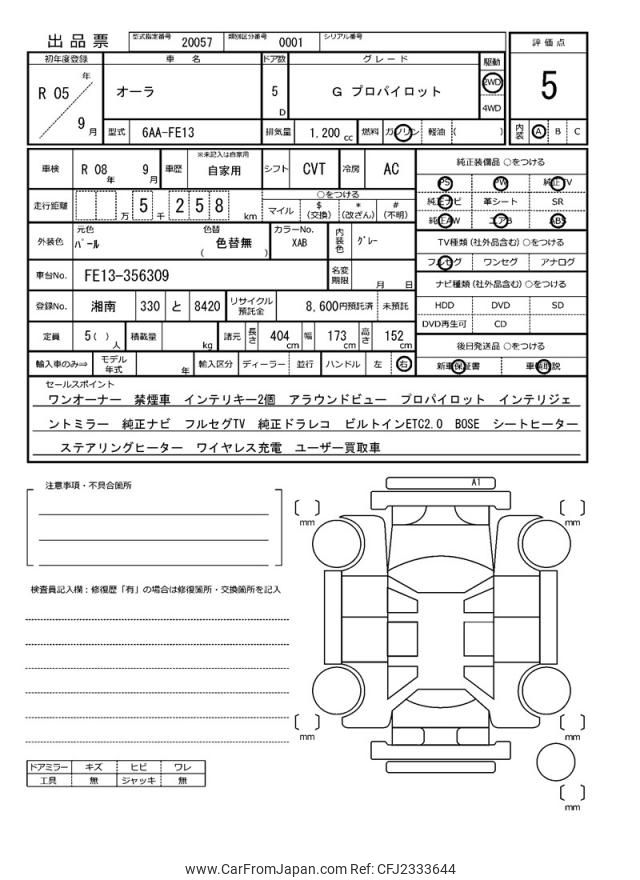 出品票 型式指定番号 20057 類別区分番号 0001 シリアル番号
評価点
初年度登録 車名 ドア数 グレード 駆動
R 05 年 9 月 オーラ 5 D G プロパイロット 2WD 4WD
5
型式 6AA-FE13 排気量 1.200 cc 燃料 ガソリン 軽油 ( )
内装 A B C
車検 R 08 年 9 月 車歴 ※未記入は自家用 自家用 シフト CVT 冷房 AC
純正装備品 ○をつける
PS PW 純正TV
純正ナビ 革シート SR
純正AW エアB ABS
走行距離 万 5 千 2 5 8 km ○をつける
マイル $ (交換) * (改ざん) # (不明)
外装色 元色 パール 色替 色替無 ( ) カラーNo. XAB 内装色 グレー
TV種類 (社外品含む) ○をつける
フルセグ ワンセグ アナログ
車台No. FE13-356309 名変期限 月 日
ナビ種類 (社外品含む) ○をつける
HDD DVD SD
DVD再生可 CD
登録No. 湘南 330 と 8420 リサイクル預託金 8,600円預託済 未預託
定員 5 ( ) 人 積載量 kg 諸元 長さ 404 cm 幅 173 cm 高さ 152 cm
後日発送品 ○をつける
新車保証書 車載取説
輸入車のみ⇒ モデル年式 年 輸入区分 ディーラー 並行 ハンドル 左 右
セールスポイント
ワンオーナー 禁煙車 インテリキー2個 アラウンドビュー プロパイロット インテリジェ
ントミラー 純正ナビ フルセグTV 純正ドラレコ ビルトインETC2.0 BOSE シートヒーター
ステアリングヒーター ワイヤレス充電 ユーザー買取車
注意事項・不具合箇所
A1
mm
mm
検査員記入欄：修復歴「有」の場合は修復箇所・交換箇所を記入
mm
mm
ドアミラー キズ ヒビ ワレ
工具 無 ジャッキ 無
mm
www.CarFromJapan.com Ref: CFJ2333644